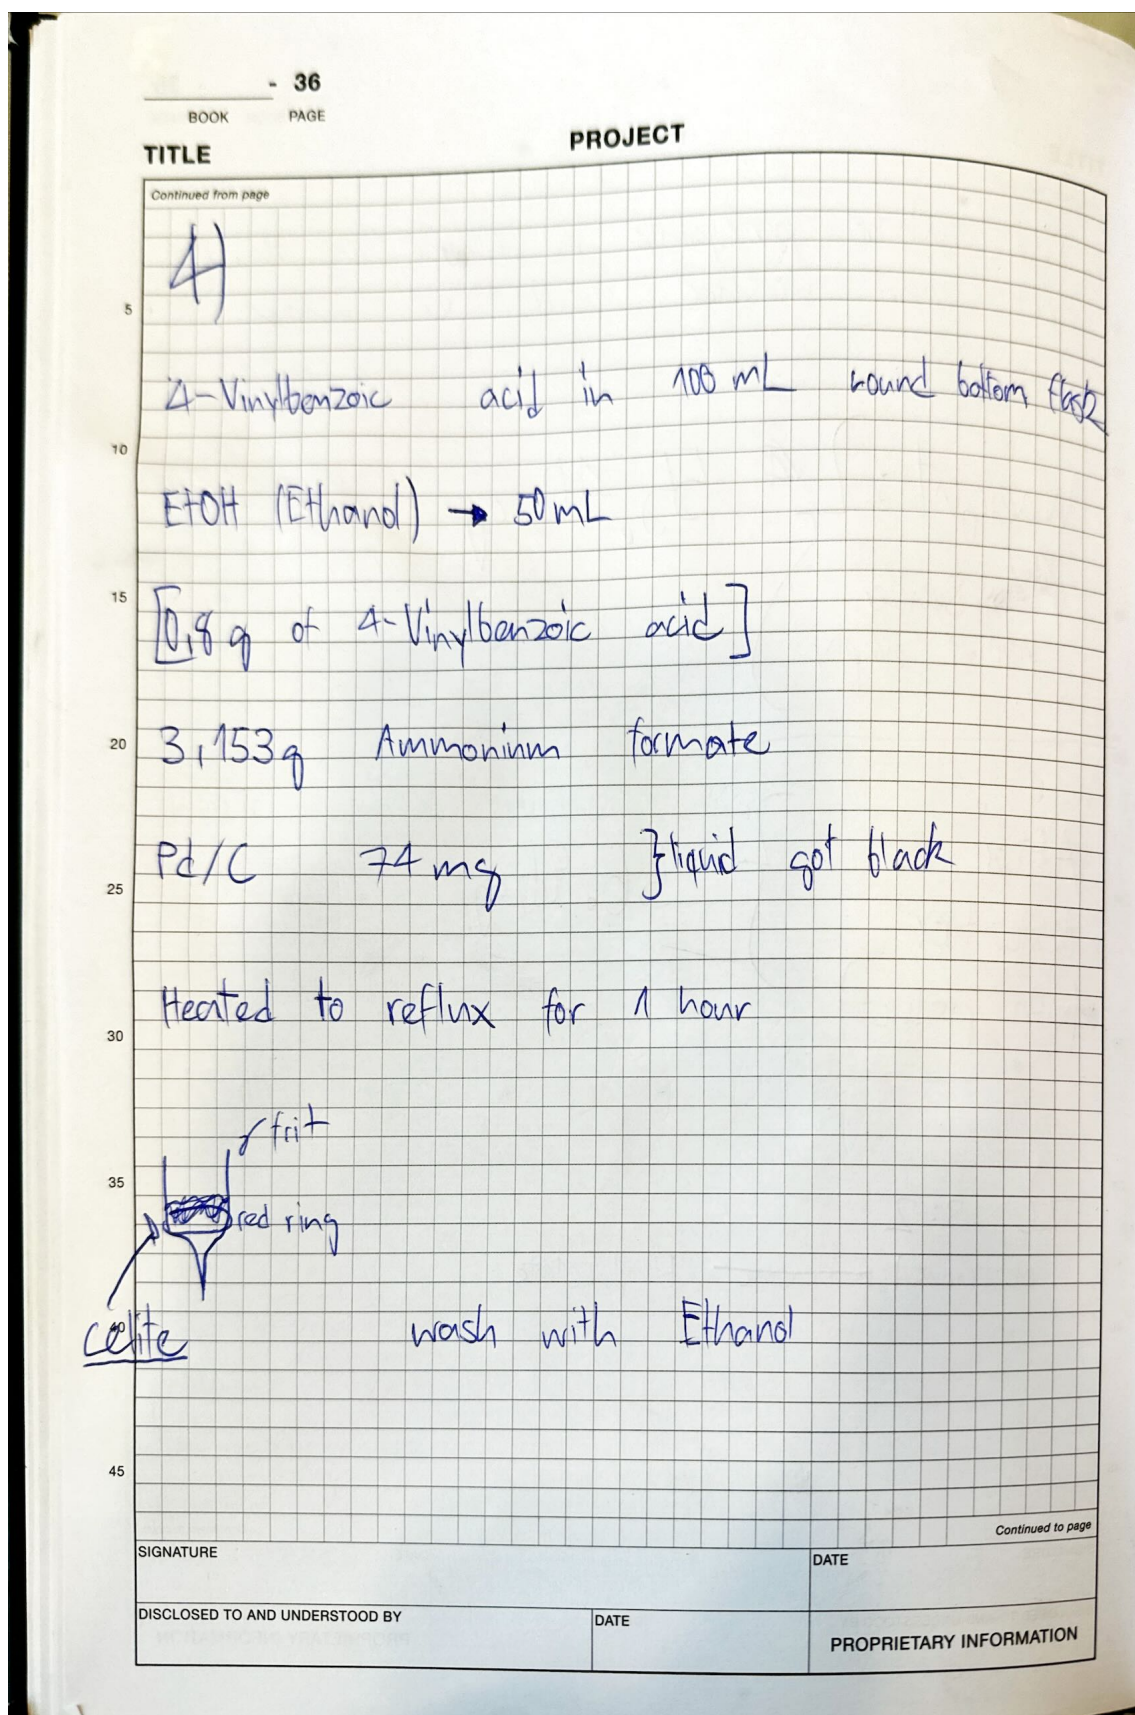 - 36
BOOK PAGE
TITLE PROJECT
Continued from page
4)
5
4-Vinylbenzoic acid in 100 mL round bottom flask
10
EtOH (Ethanol) → 50 mL
15
[0,8 g of 4-Vinylbenzoic acid]
20
3,153g Ammonium formate
Pd/C 74 mg }liquid got black
25
Heated to reflux for 1 hour
30
frit
35
red ring
40
celite wash with Ethanol
45
Continued to page
SIGNATURE DATE
DISCLOSED TO AND UNDERSTOOD BY DATE
PROPRIETARY INFORMATION